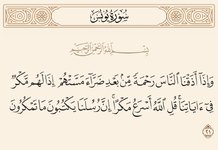 سُورَةُ يُونُسَ
بِسْمِ ٱللَّهِ ٱلرَّحْمَٰنِ ٱلرَّحِيمِ
وَإِذَآ أَذَقْنَا ٱلنَّاسَ رَحْمَةً مِّنۢ بَعْدِ ضَرَّآءَ مَسَّتْهُمْ إِذَا لَهُم مَّكْرٌ
فِىٓ ءَايَاتِنَا ۚ قُلِ ٱللَّهُ أَسْرَعُ مَكْرًا ۚ إِنَّ رُسُلَنَا يَكْتُبُونَ مَا تَمْكُرُونَ
٢١